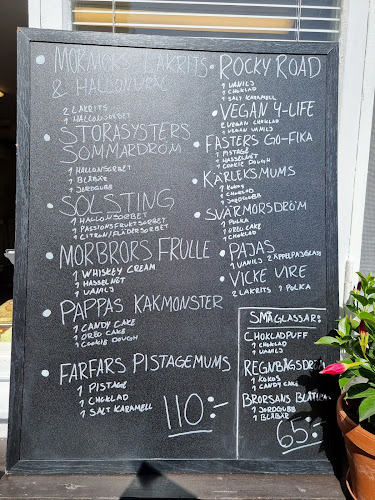 MORMORS LAKRITS
& HALLON
2 LAKRITS
1 HALLONSORBET
STORASYSTERS
SOMMARDRÖM
1 HALLONSORBET
1 BLÅBÄR
1 JORDGUBB
SOLSTING
1 HALLONSORBET
1 PASSIONSFRUKTSORBET
1 CITRON/FLÄDERSORBET
MORBRORS FRULLE
1 WHISKEY CREAM
1 HASSELNÖT
1 VANILJ
PAPPAS KAKMONSTER
1 CANDY CAKE
1 OREO CAKE
1 COOKIE DOUGH
FARFARS PISTAGEMUMS
1 PISTAGE
1 CHOKLAD
1 SALT KARAMELL
110:-
ROCKY ROAD
1 VANILJ
1 CHOKLAD
1 SALT KARAMELL
VEGAN 4-LIFE
2 VEGAN CHOKLAD
2 VEGAN VANILJ
FASTERS GO-FIKA
1 PISTAGE
1 HASSELNÖT
1 COOKIE DOUGH
KÄRLEKSMUMS
1 KOKOS
1 CHOKLAD
1 JORDGUBB
SVÄRMORSDRÖM
1 POLKA
1 OREO CAKE
1 CHOKLAD
PAJAS
1 VANILJ 2 ÄPPELPAJGLASS
VICKE VIRE
2 LAKRITS 1 POLKA
SMÅGLASSAR:
CHOKLADPUFF
1 CHOKLAD
1 VANILJ
REGNBÅGSDRÖM
1 KOKOS
1 CANDY CAKE
BRORSANS
1 JORDGUBB
1 BLÅBÄR
65:-